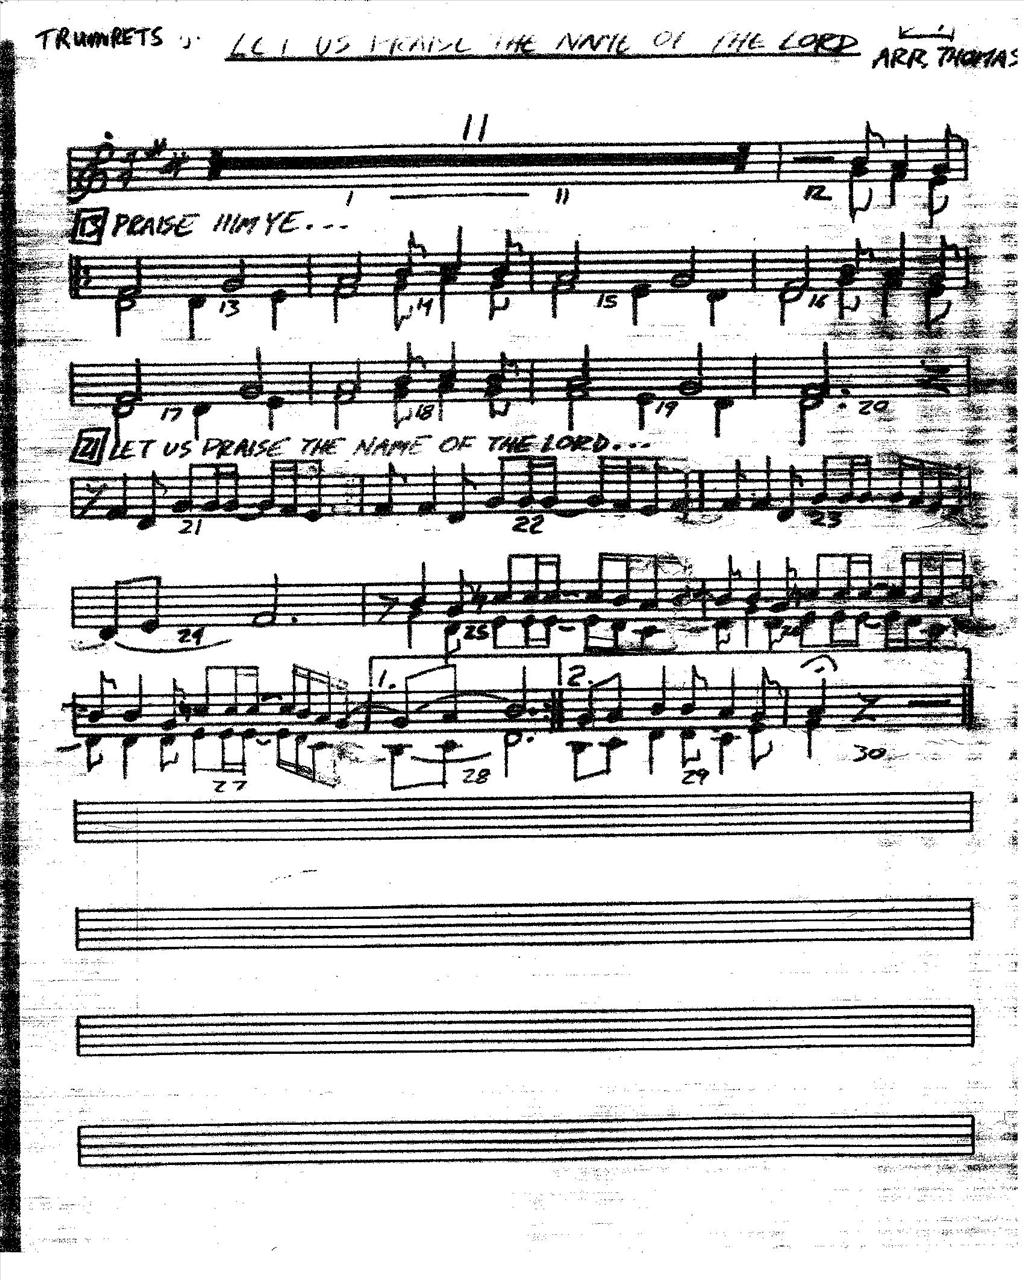 TRUMPETS
LET US PRAISE THE NAME OF THE LORD
ARR. THOMAS
11
1 11 12
13 PRAISE HIM YE...
13 14 15 16
17 18 19 20
21 LET US PRAISE THE NAME OF THE LORD...
21 22 23
24 25 26
1. 2.
27 28 29 30